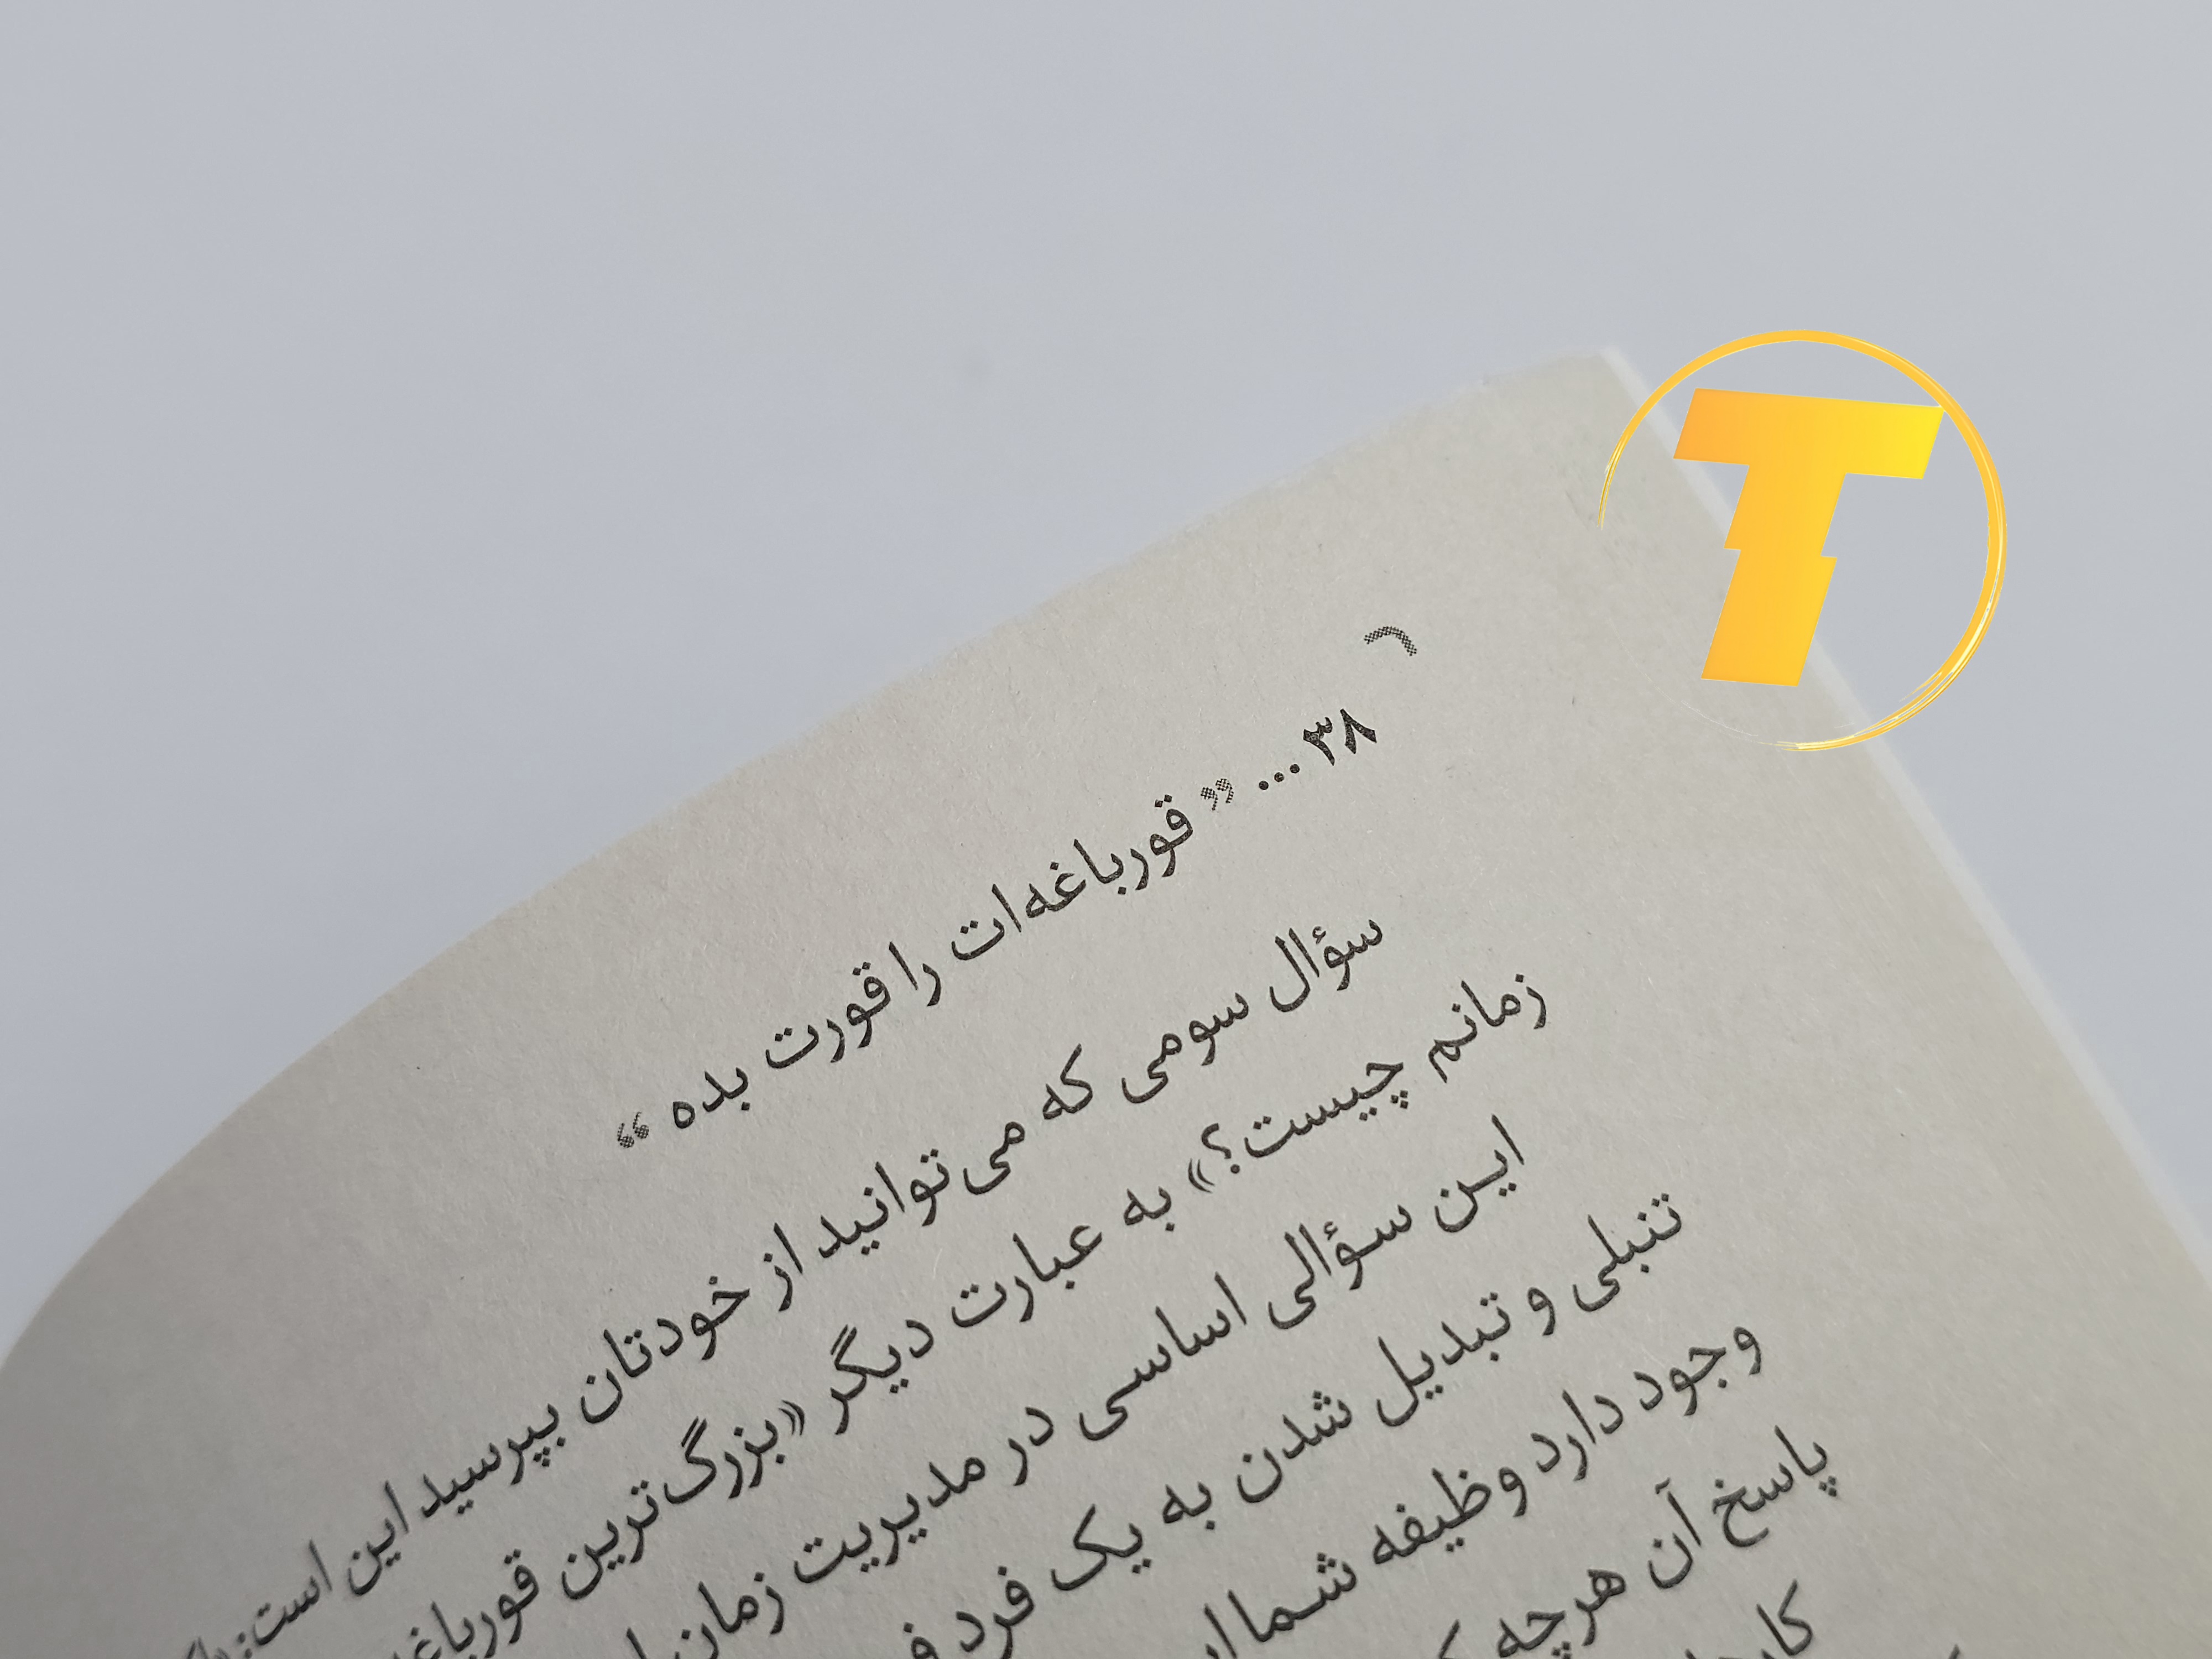 ۳۸ ... " قورباغه‌ات را قورت بده "
سؤال سومی که می‌توانید از خودتان بپرسید این است:
زمانم چیست؟» به عبارت دیگر «بزرگ‌ترین
این سؤالی اساسی در مدیریت زمان
تنبلی و تبدیل شدن به یک فرد
وجود دارد وظیفه شما
پاسخ آن هرچه
T